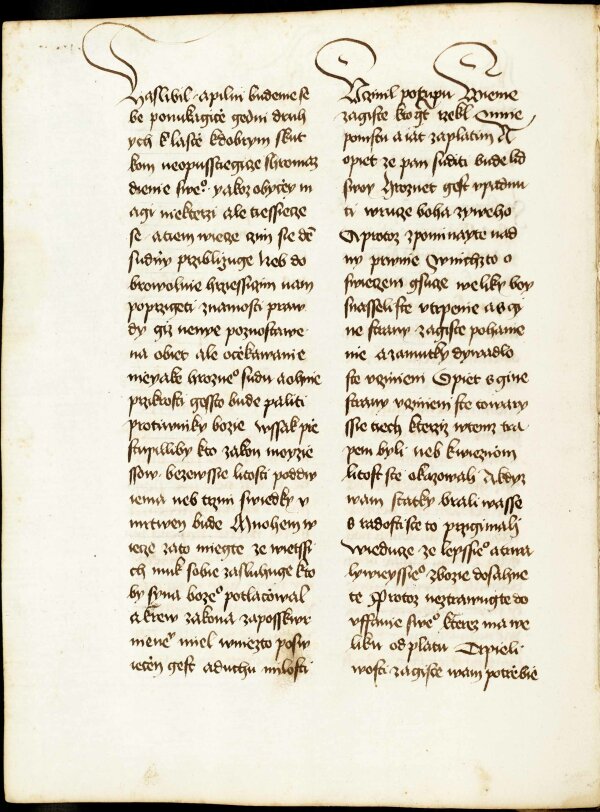 zaslibil · apilni budeme se
be ponukagice gedni druh
ych k lasce kdobrym skut
kom neopusstiegicze shromaz
dienie swe° · yakoz obyčey m
agi niekteřzi ale tiessiecze
se · atiem wiecze čzim sie dē
sudny przibližuge Neb do
browolnie hrzessiczim nam
po przigeti · znamosti praw
dy giz nenye pozuostawe
na obiet ale očekawanie
nieyake hrozne° sudu aohnie
přzikrosti genžto bude paliti
protiwniky bozie wssak při
stupilliby kto zakon moyzie
ssow bezewssie litosti poddw
iema neb třzmi swiedky v
mrtwen bude Mnohem w
iecze zato mniegte ze wietssi
ch muk sobie zasluhuge kto
by syna boze° potlačowal
a krew zakona zaposskwr
niene° miel wniezto posw
iecen gest aduchu milosti
Vczinil potupu Wieme
zagiste kto gt rzekl Mnie
pomstu a iat zaplatim A
opiet ze pan suditi bude lid
swoy Hrozne t gest vpadnu
ti wruce boha zyweho
Aprotoz zpominayte nad
ny prwnie Wnichzto o
swieceni gsuce weliky boy
snasseli ste vtrpenie as gi
ne strany zagiste pohanie
nie azamutky dywadlo
ste vczinieni Opiet s gine
strany vczinieni ste towary
ssie tiech kterziz wtemz tra
peni byli neb kwiezniom
litost ste okazowali Akdyz
wam statky brali wasse
s radosti ste to przigimali
Wieduce ze lepssie° atrwa
lyweyssie° zbozie dosahne
te Protoz neztraczugte do
vffanie swe° kterez ma we
liku odplatu Trpieli
wosti zagiste wam potrebie